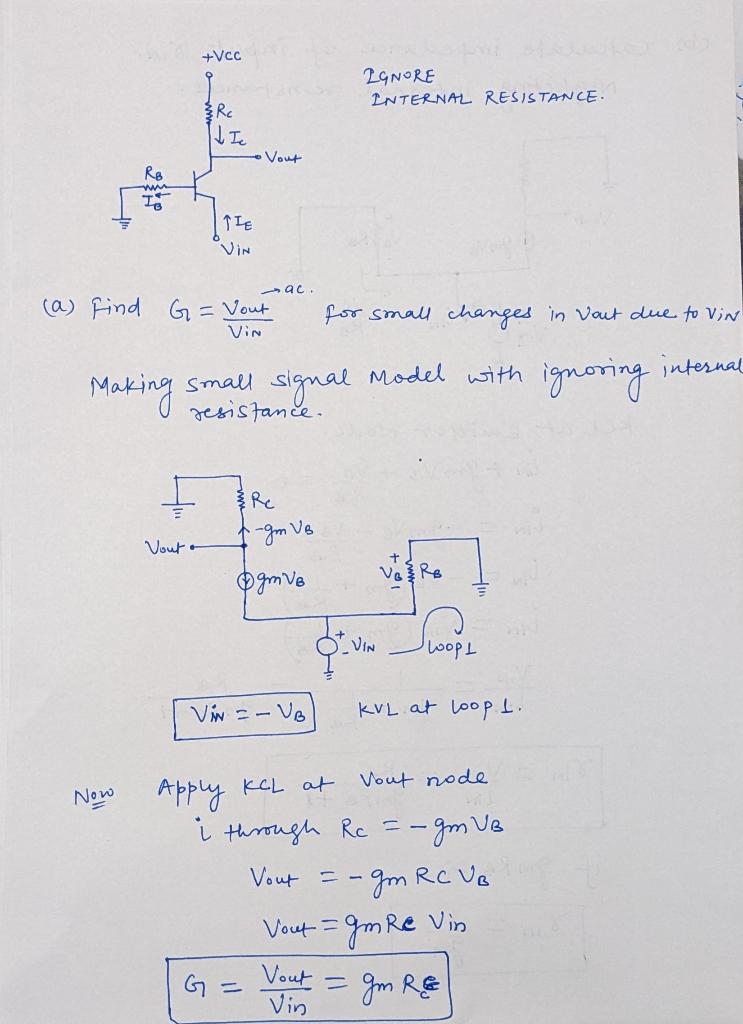 +Vcc
IGNORE
INTERNAL RESISTANCE.
Rc
↓ Ic
Vout
RB
IB
↑IE
VIN
(a) Find G = Vout/VIN → ac. for small changes in Vout due to VIN
Making small signal Model with ignoring internal
resistance.
Rc
-gm VB
Vout
gm VB
+ VB - RB
+ - VIN
Loop 1
Vin = - VB KVL at loop 1.
Now Apply KCL at Vout node
i through Rc = - gm VB
Vout = - gm RC VB
Vout = gm Rc Vin
G = Vout/Vin = gm Rc